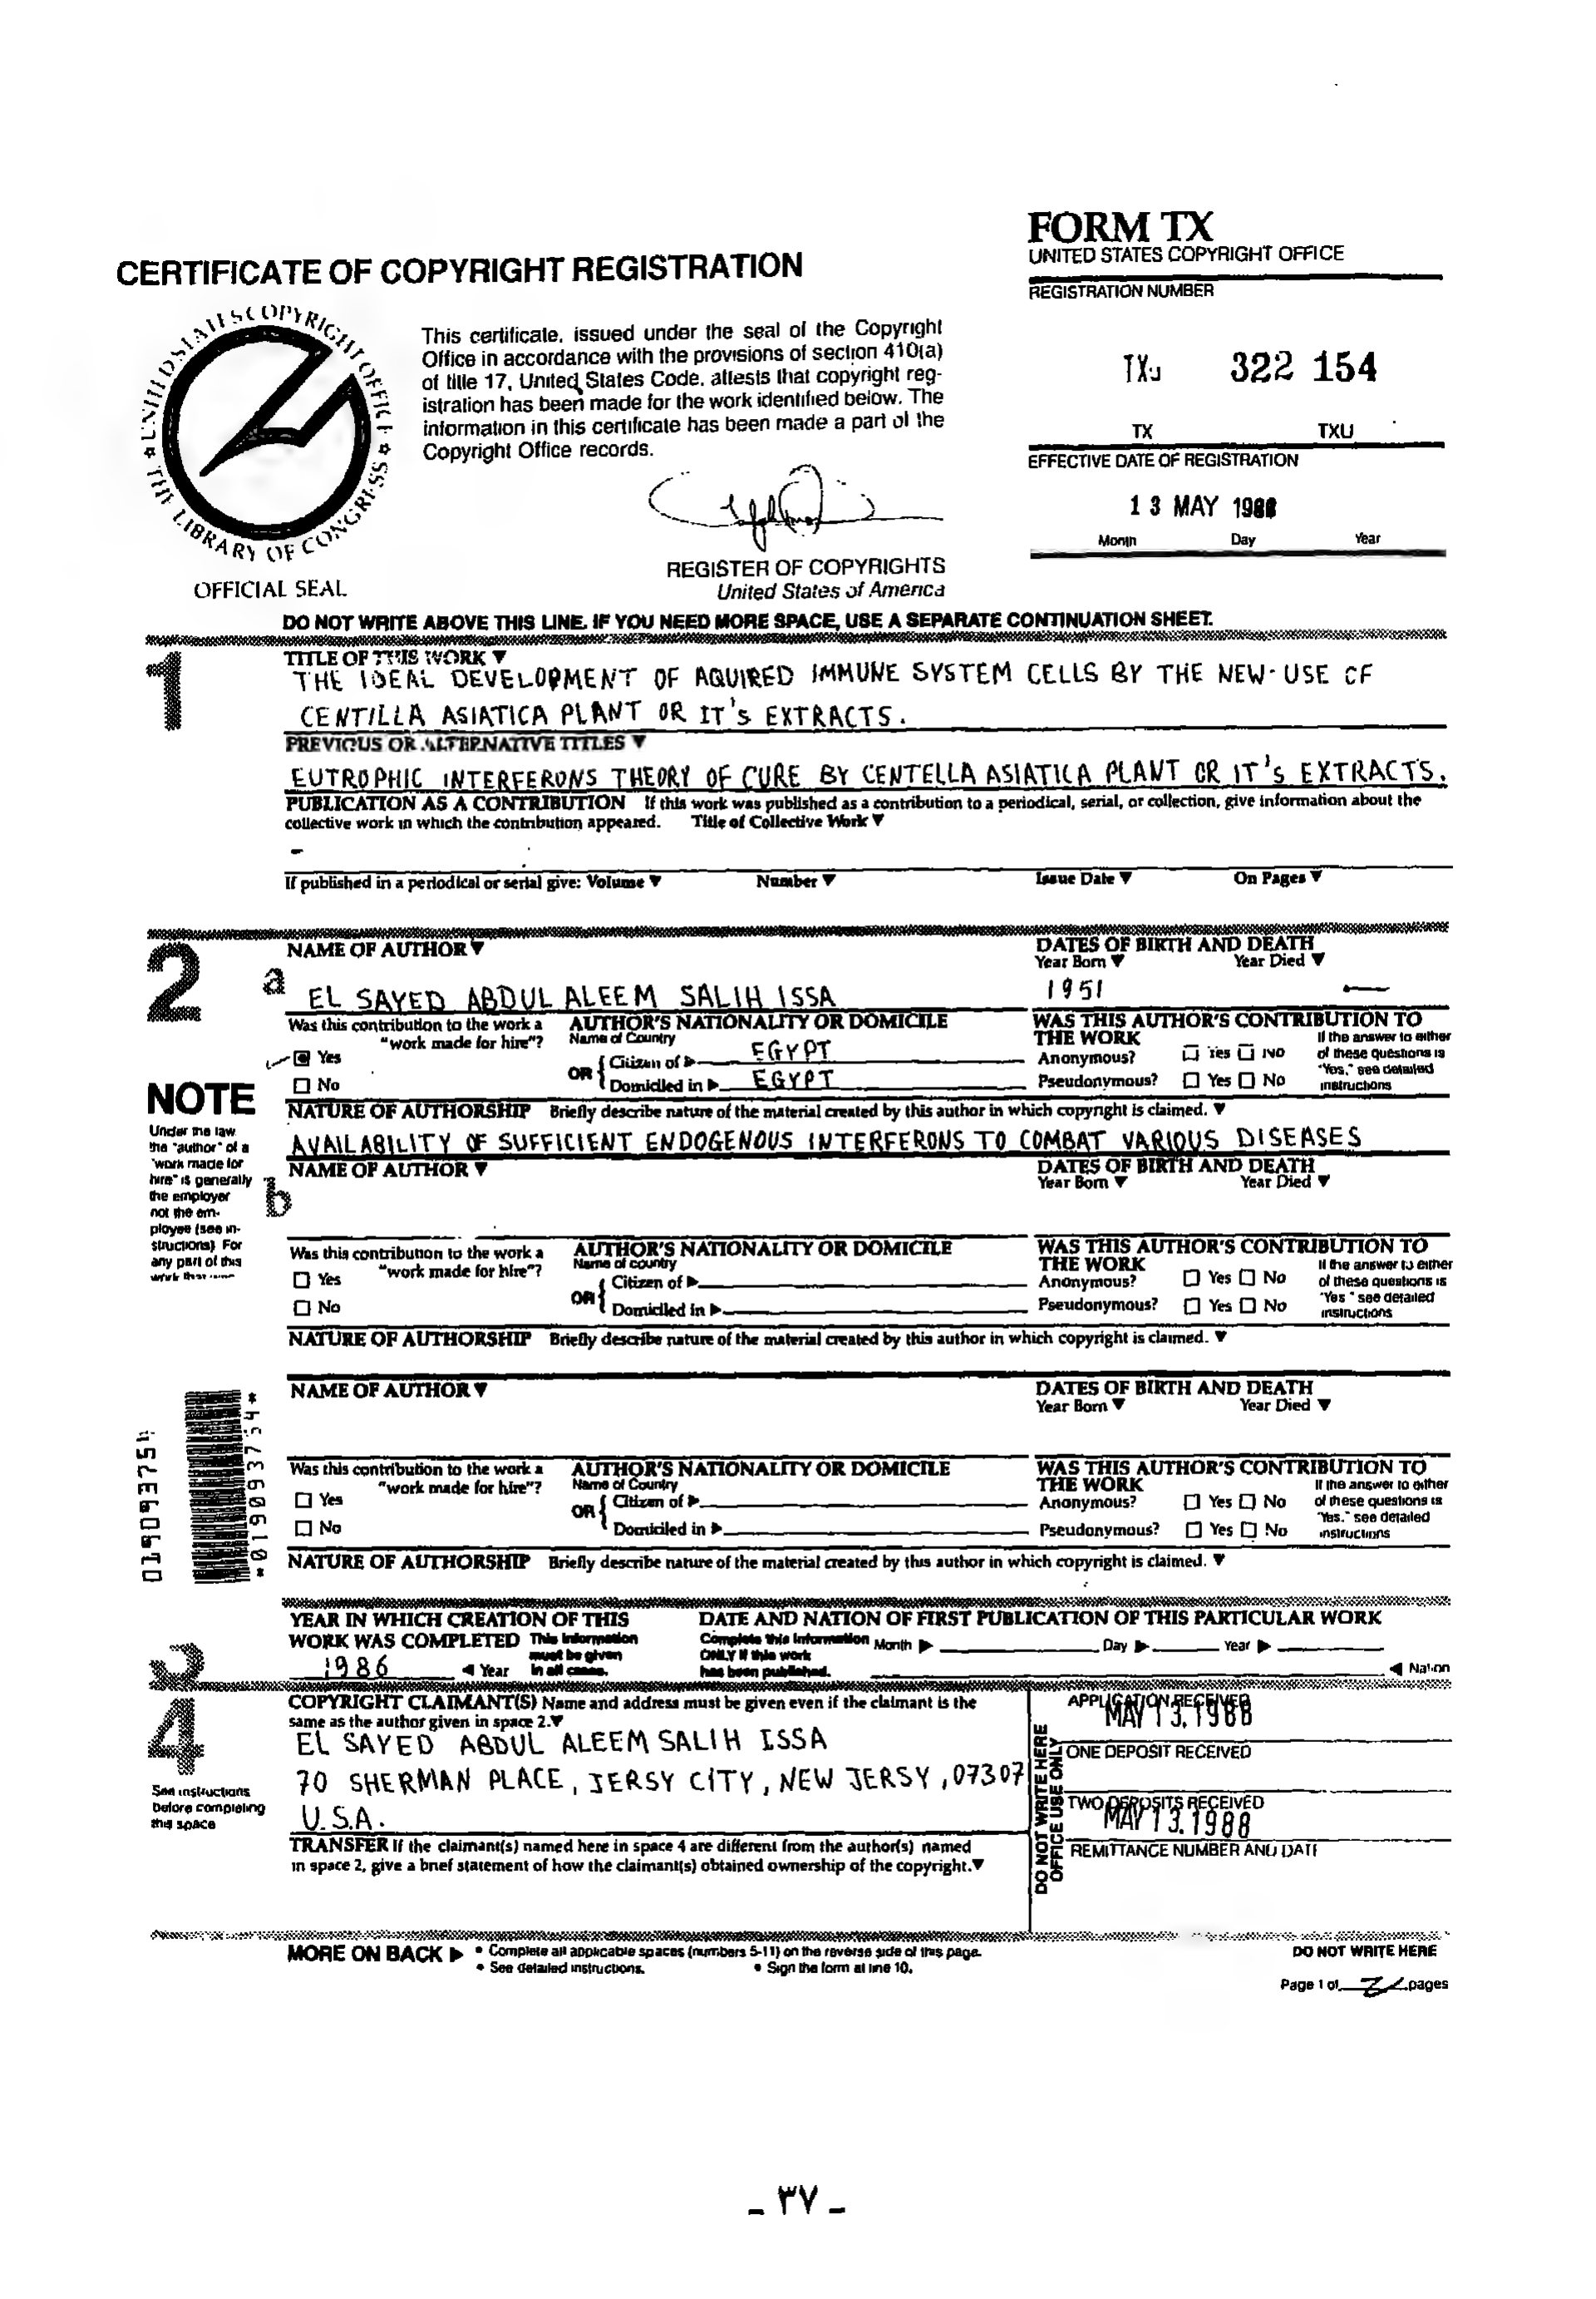 FORM TX
UNITED STATES COPYRIGHT OFFICE
REGISTRATION NUMBER
TXu 322 154
TX TXU
EFFECTIVE DATE OF REGISTRATION
13 MAY 1988
Month Day Year
CERTIFICATE OF COPYRIGHT REGISTRATION
UNITED STATES COPYRIGHT OFFICE
THE LIBRARY OF CONGRESS
OFFICIAL SEAL
This certificate, issued under the seal of the Copyright
Office in accordance with the provisions of section 410(a)
of title 17, United States Code, attests that copyright reg-
istration has been made for the work identified below. The
information in this certificate has been made a part of the
Copyright Office records.
REGISTER OF COPYRIGHTS
United States of America
DO NOT WRITE ABOVE THIS LINE. IF YOU NEED MORE SPACE, USE A SEPARATE CONTINUATION SHEET.
1
TITLE OF THIS WORK ▼
THE IDEAL DEVELOPMENT OF AQUIRED IMMUNE SYSTEM CELLS BY THE NEW-USE OF
CENTILLA ASIATICA PLANT OR IT's EXTRACTS.
PREVIOUS OR ALTERNATIVE TITLES ▼
EUTROPHIC INTERFERONS THEORY OF CURE BY CENTELLA ASIATICA PLANT OR IT's EXTRACTS.
PUBLICATION AS A CONTRIBUTION If this work was published as a contribution to a periodical, serial, or collection, give information about the
collective work in which the contribution appeared. Title of Collective Work ▼
–
If published in a periodical or serial give: Volume ▼ Number ▼ Issue Date ▼ On Pages ▼
2
NAME OF AUTHOR ▼ DATES OF BIRTH AND DEATH
Year Born ▼ Year Died ▼
a EL SAYED ABDUL ALEEM SALIH ISSA 1951 —
Was this contribution to the work a "work made for hire"?
☑ Yes
☐ No
AUTHOR'S NATIONALITY OR DOMICILE
Name of Country
OR { Citizen of ▶ EGYPT
Domiciled in ▶ EGYPT
WAS THIS AUTHOR'S CONTRIBUTION TO
THE WORK
Anonymous? ☐ Yes ☐ No
Pseudonymous? ☐ Yes ☐ No
If the answer to either
of these questions is
"Yes," see detailed
instructions
NATURE OF AUTHORSHIP Briefly describe nature of the material created by this author in which copyright is claimed. ▼
AVAILABILITY OF SUFFICIENT ENDOGENOUS INTERFERONS TO COMBAT VARIOUS DISEASES
NOTE
Under the law
the "author" of a
"work made for
hire" is generally
the employer
not the em-
ployee (see in-
structions) For
any part of this
NAME OF AUTHOR ▼ DATES OF BIRTH AND DEATH
Year Born ▼ Year Died ▼
b
Was this contribution to the work a
"work made for hire"?
☐ Yes
☐ No
AUTHOR'S NATIONALITY OR DOMICILE
Name of country
OR { Citizen of ▶
Domiciled in ▶
WAS THIS AUTHOR'S CONTRIBUTION TO
THE WORK
Anonymous? ☐ Yes ☐ No
Pseudonymous? ☐ Yes ☐ No
If the answer to either
of these questions is
"Yes" see detailed
instructions
NATURE OF AUTHORSHIP Briefly describe nature of the material created by this author in which copyright is claimed. ▼
NAME OF AUTHOR ▼ DATES OF BIRTH AND DEATH
Year Born ▼ Year Died ▼
Was this contribution to the work a
"work made for hire"?
☐ Yes
☐ No
AUTHOR'S NATIONALITY OR DOMICILE
Name of Country
OR { Citizen of ▶
Domiciled in ▶
WAS THIS AUTHOR'S CONTRIBUTION TO
THE WORK
Anonymous? ☐ Yes ☐ No
Pseudonymous? ☐ Yes ☐ No
If the answer to either
of these questions is
"Yes." see detailed
instructions
NATURE OF AUTHORSHIP Briefly describe nature of the material created by this author in which copyright is claimed. ▼
3
YEAR IN WHICH CREATION OF THIS
WORK WAS COMPLETED This information
must be given
in all cases.
1986 ◀ Year
DATE AND NATION OF FIRST PUBLICATION OF THIS PARTICULAR WORK
Complete this information
ONLY if this work
has been published.
Month ▶ Day ▶ Year ▶
◀ Nation
4
See instructions
before completing
this space
COPYRIGHT CLAIMANT(S) Name and address must be given even if the claimant is the
same as the author given in space 2.▼
EL SAYED ABDUL ALEEM SALIH ISSA
70 SHERMAN PLACE, JERSY CITY, NEW JERSY, 07307
U.S.A.
TRANSFER If the claimant(s) named here in space 4 are different from the author(s) named
in space 2, give a brief statement of how the claimant(s) obtained ownership of the copyright.▼
DO NOT WRITE HERE
OFFICE USE ONLY
APPLICATION RECEIVED
MAY 13.1988
ONE DEPOSIT RECEIVED
TWO DEPOSITS RECEIVED
MAY 13.1988
REMITTANCE NUMBER AND DATE
MORE ON BACK ▶ • Complete all applicable spaces (numbers 5-11) on the reverse side of this page.
• See detailed instructions. • Sign the form at line 10.
DO NOT WRITE HERE
Page 1 of pages
- ٣٧ -